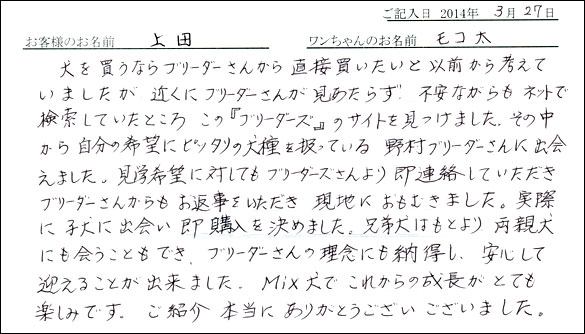 ご記入日 2014年 3月27日
お客様のお名前 上田 ワンちゃんのお名前 モコ太
犬を買うならブリーダーさんから直接買いたいと以前から考えて
いましたが 近くにブリーダーさんが見あたらず、不安ながらもネットで
検索していたところ この『ブリーダーズ』のサイトを見つけました。その中
から自分の希望にピッタリの犬種を扱っている 野村ブリーダーさんに出会
えました。見学希望に対してもブリーダーズさんより即連絡していただき
ブリーダーさんからもお返事をいただき 現地におもむきました。実際
に子犬に出会い 即購入を決めました。兄弟犬はもとより両親犬
にも会うこともでき、ブリーダーさんの理念にも納得し、安心して
迎えることが出来ました。Mix犬でこれからの成長がとても
楽しみです。ご紹介 本当にありがとうござい ございました。